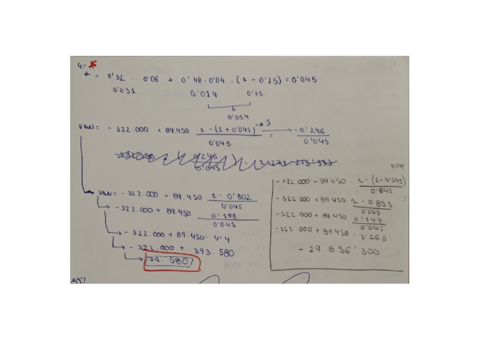 4.-
0'52 · 0'06 + 0'48 · 0'04 · (1 - 0'25) = 0'045
0'031 0'019 0'75
0'014
VAN = - 322.000 + 89.450 1 - (1 + 0'045)⁻⁵ / 0'045 - 0'246 / 0'045
VAN = - 322.000 + 89.450 1 - 0'802 / 0'045
- 322.000 + 89.450 0'198 / 0'045
- 322.000 + 89.450 · 4'4
- 322.000 + 393.580
71.580
- 322.000 + 89.450 · 1 - (1+0'045) / 0'045
- 322.000 + 89.450 1 - 0'853 / 0'045
- 322.000 + 89.450 0'147 / 0'045
- 322.000 + 89.450 · 3'266
- 29 856'300